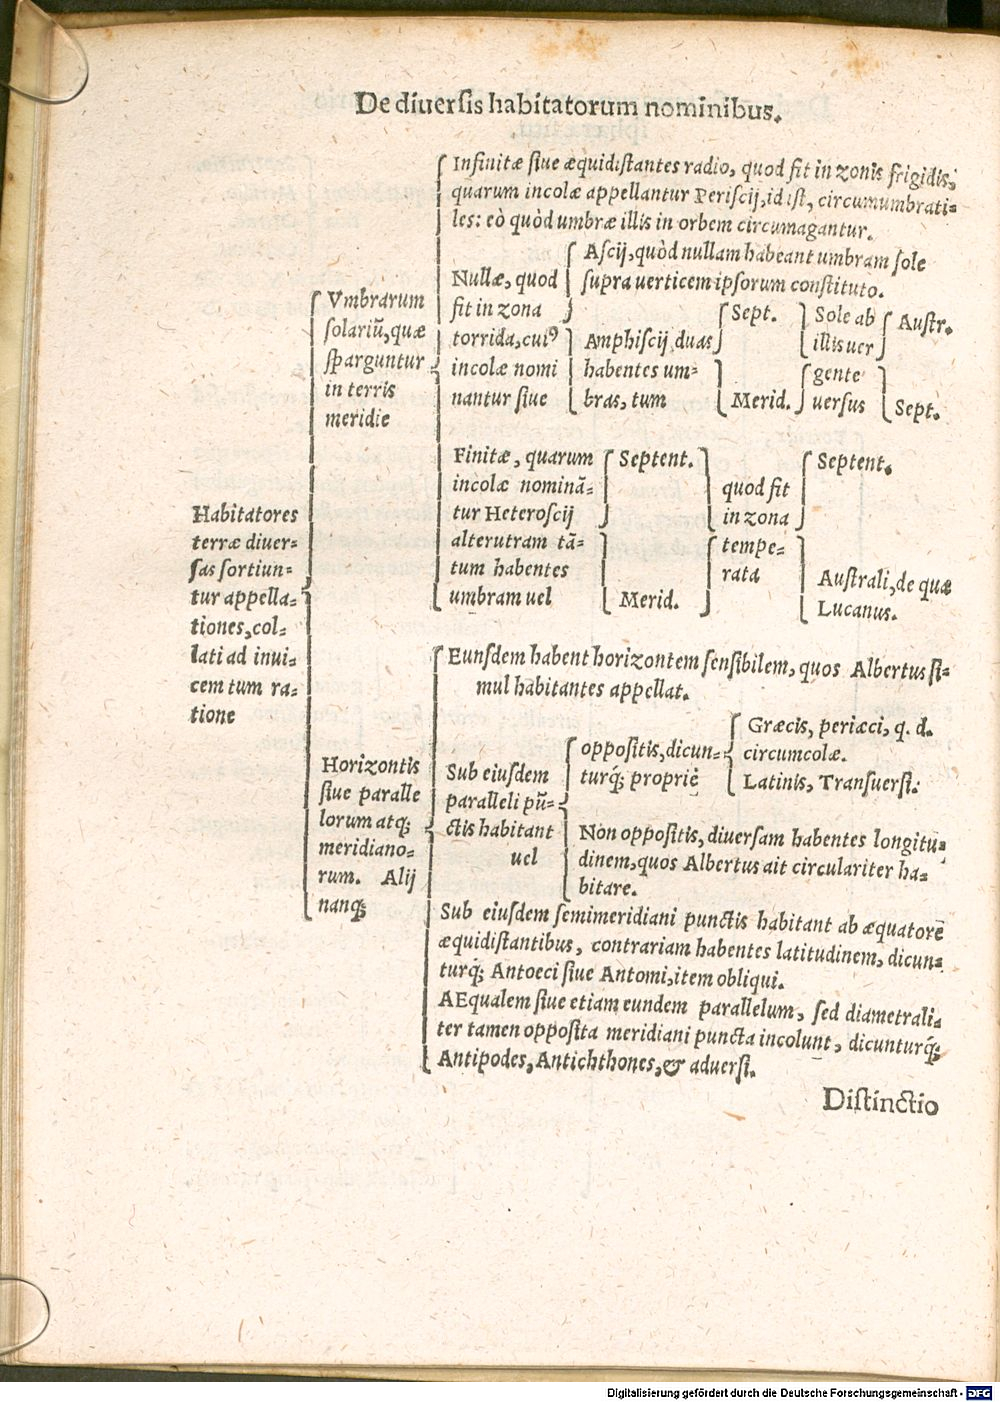 De diuersis habitatorum nominibus.
Habitatores
terræ diuer-
sas sortiun-
tur appella-
tiones, col-
lati ad inui-
cem tum ra-
tione
Vmbrarum
solariũ, quæ
sparguntur
in terris
meridie
Infinitæ siue æquidistantes radio, quod fit in zonis frigidis,
quarum incolæ appellantur Periscij, id ist, circumumbrati-
les: eò quòd umbræ illis in orbem circumagantur.
Nullæ, quod
fit in zona
torrida, cuiꝰ
incolæ nomi
nantur siue
Ascij, quòd nullam habeant umbram sole
supra uerticem ipsorum constituto.
Amphiscij duas
habentes um-
bras, tum
Sept.
Merid.
Sole ab
illis uer
gente
uersus
Austr.
Sept.
Finitæ, quarum
incolæ nominã-
tur Heteroscij
alterutram tã-
tum habentes
umbram uel
Septent.
Merid.
quod fit
in zona
tempe-
rata
Septent.
Australi, de quæ
Lucanus.
Horizontis
siue paralle
lorum atq;
meridiano-
rum. Alij
nanq;
Eunsdem habent horizontem sensibilem, quos Albertus si-
mul habitantes appellat.
Sub eiusdem
paralleli pũ-
ctis habitant
uel
oppositis, dicun-
turq́; propriẽ
Græcis, periæci, q. d.
circumcolæ.
Latinis, Transuersi.
Non oppositis, diuersam habentes longitu-
dinem, quos Albertus ait circulariter ha-
bitare.
Sub eiusdem semimeridiani punctis habitant ab æquatorẽ
æquidistantibus, contrariam habentes latitudinem, dicun-
turq́; Antoeci siue Antomi, item obliqui.
AEqualem siue etiam eundem parallelum, sed diametrali-
ter tamen opposita meridiani puncta incolunt, dicunturq́;
Antipodes, Antichthones, & aduersi.
Distinctio
Digitalisierung gefördert durch die Deutsche Forschungsgemeinschaft - DFG